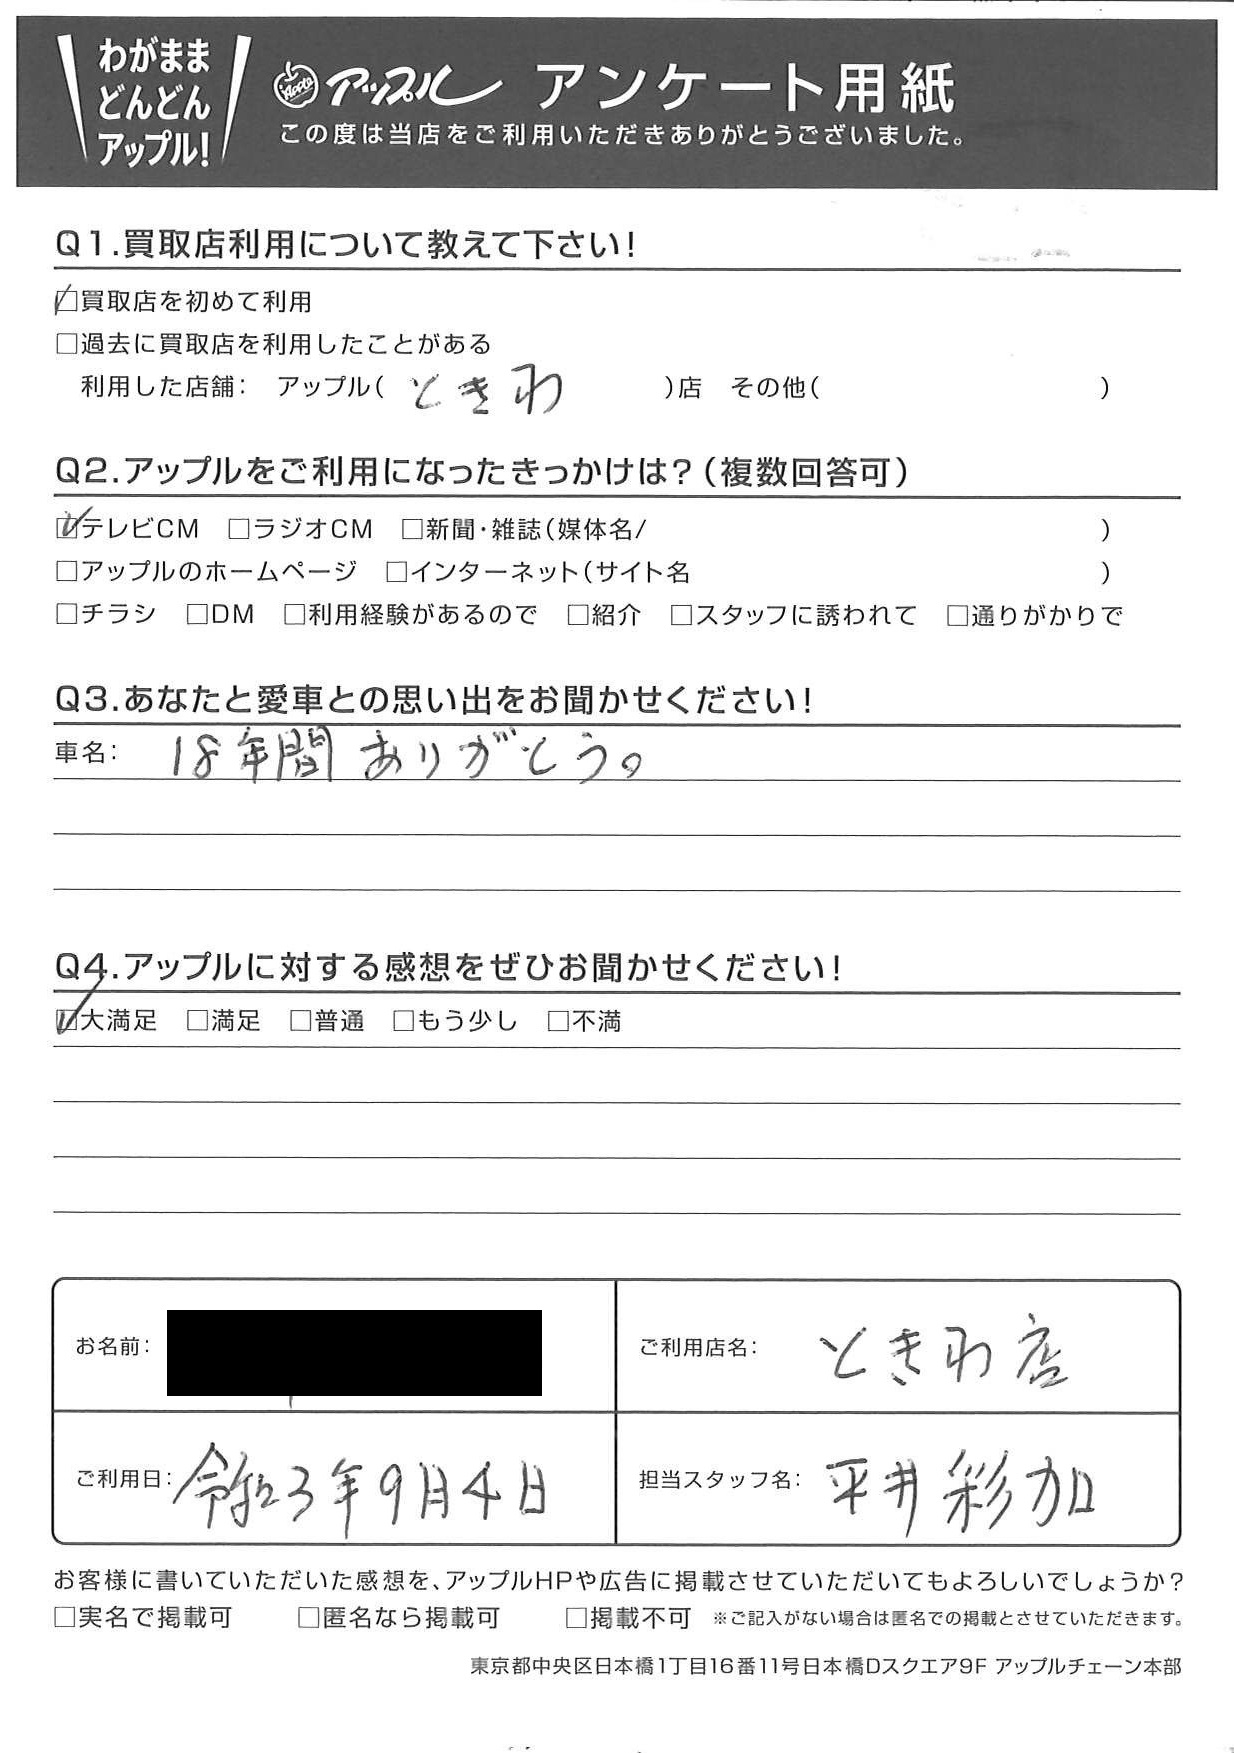 わがまま
どんどん
アップル!
Apple アップル アンケート用紙
この度は当店をご利用いただきありがとうございました。
Q1.買取店利用について教えて下さい!
☑買取店を初めて利用
□過去に買取店を利用したことがある
利用した店舗: アップル(ときわ)店 その他( )
Q2.アップルをご利用になったきっかけは?(複数回答可)
☑テレビCM □ラジオCM □新聞・雑誌(媒体名/ )
□アップルのホームページ □インターネット(サイト名 )
□チラシ □DM □利用経験があるので □紹介 □スタッフに誘われて □通りがかりで
Q3.あなたと愛車との思い出をお聞かせください!
車名: 18年間ありがとう。
Q4.アップルに対する感想をぜひお聞かせください!
☑大満足 □満足 □普通 □もう少し □不満
お名前:
ご利用店名: ときわ店
ご利用日: 令和3年9月4日
担当スタッフ名: 平井彩加
お客様に書いていただいた感想を、アップルHPや広告に掲載させていただいてもよろしいでしょうか?
□実名で掲載可 □匿名なら掲載可 □掲載不可 ※ご記入がない場合は匿名での掲載とさせていただきます。
東京都中央区日本橋1丁目16番11号日本橋Dスクエア9F アップルチェーン本部